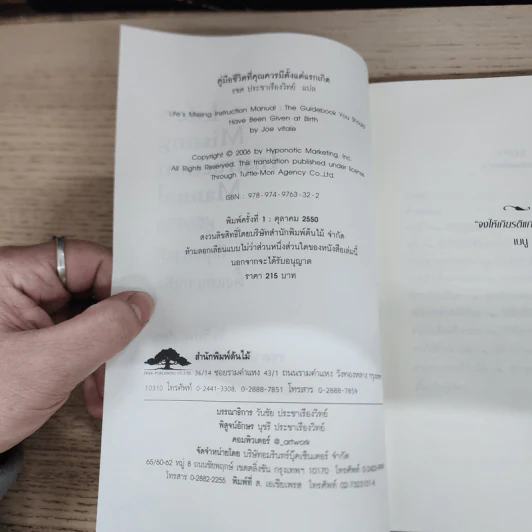 คู่มือชีวิตที่คุณควรมีตั้งแต่แรกเกิด
เชค ประชาเรืองวิทย์ แปล
Life's Missing Instruction Manual : The Guidebook You Should
Have Been Given at Birth
by Joe vitale
Copyright © 2006 by Hypnotic Marketing, Inc.
All Rights Reserved. This translation published under license
Through Tuttle-Mori Agency Co.,Ltd.
ISBN : 978-974-9763-32-2
พิมพ์ครั้งที่ 1 : ตุลาคม 2550
สงวนลิขสิทธิ์โดยบริษัทสำนักพิมพ์ต้นไม้ จำกัด
ห้ามลอกเลียนแบบไม่ว่าส่วนหนึ่งส่วนใดของหนังสือเล่มนี้
นอกจากจะได้รับอนุญาต
ราคา 215 บาท
สำนักพิมพ์ต้นไม้
36/14 ซอยรามคำแหง 43/1 ถนนรามคำแหง วังทองหลาง กรุงเทพฯ
10310 โทรศัพท์ 0-2441-3308, 0-2888-7851 โทรสาร 0-2888-7859
บรรณาธิการ วันชัย ประชาเรืองวิทย์
พิสูจน์อักษร นุชรี ประชาเรืองวิทย์
คอมพิวเตอร์ @_artwork
จัดจำหน่ายโดย บริษัทอมรินทร์บุ๊คเซ็นเตอร์ จำกัด
65/60-62 หมู่ 8 ถนนชัยพฤกษ์ เขตตลิ่งชัน กรุงเทพฯ 10170 โทรศัพท์
โทรสาร 0-2882-2255 พิมพ์ที่ ส. เอเชียเพรส โทรศัพท์
"จงให้เกียรติแก่